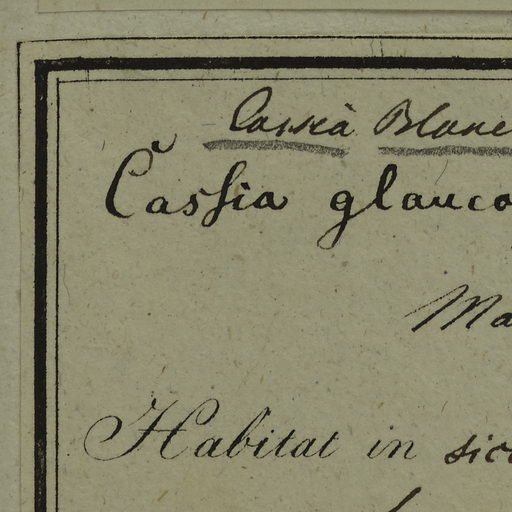 Cassia Blanc
Cassia glauco
Ma
Habitat in sicc